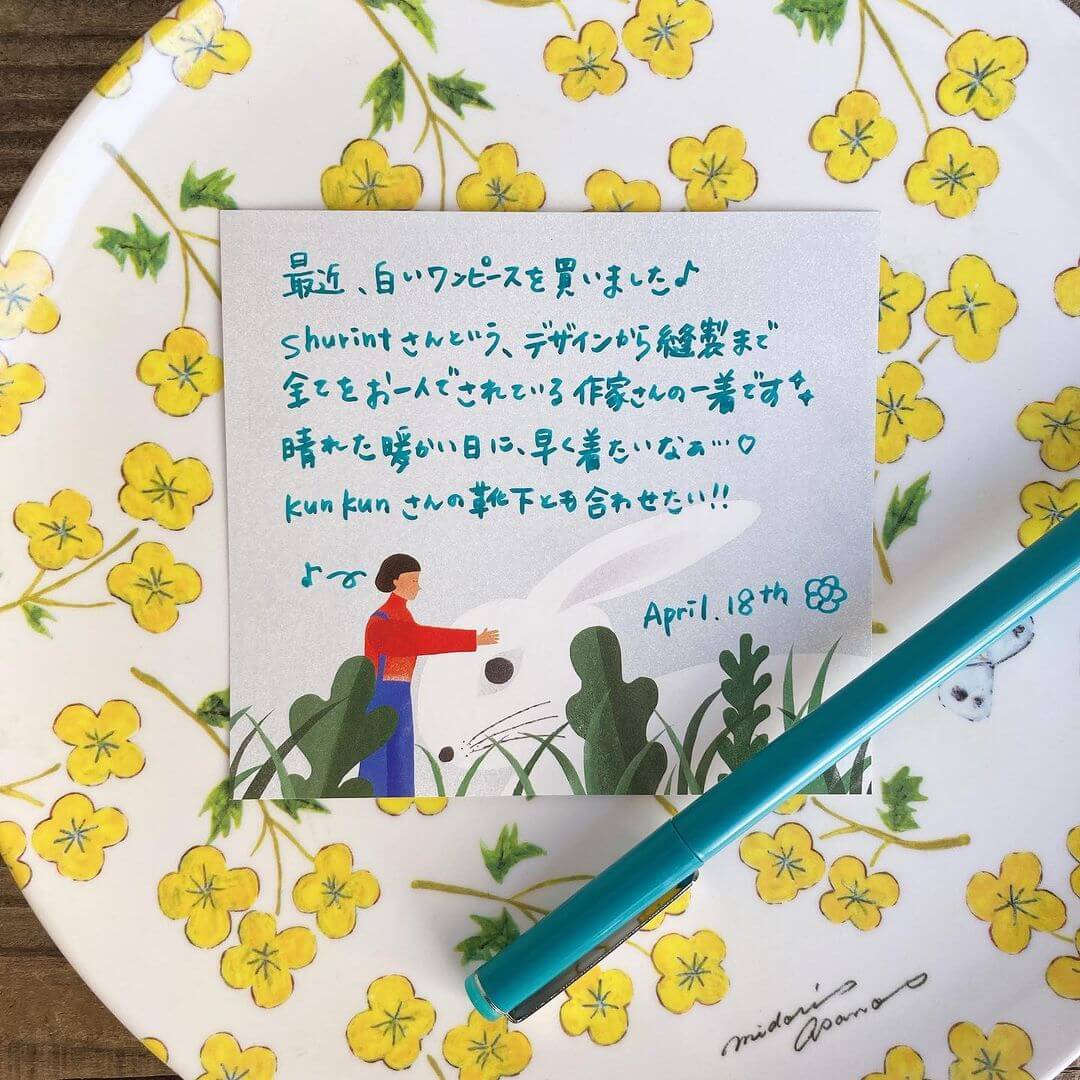 最近、白いワンピースを買いました♪
shurintさんという、デザインから縫製まで
全てをお一人でされている作家さんの一着です
晴れた暖かい日に、早く着たいなぁ…♡
kunkunさんの靴下とも合わせたい!!
♪
April.18th
midori
asano